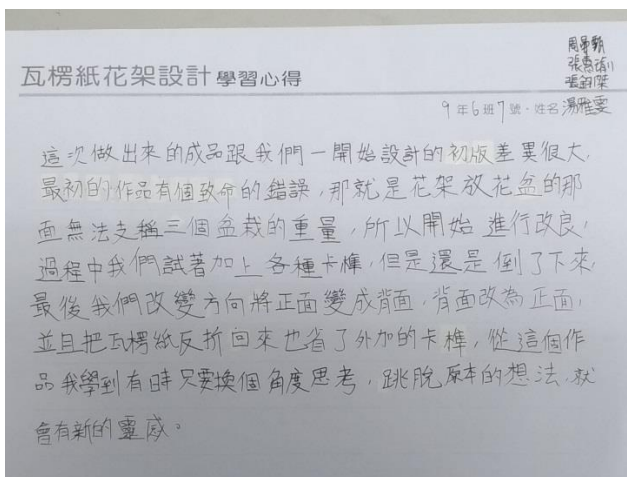 周昱甄
張喬涓
張鈞傑
瓦楞紙花架設計 學習心得
9年6班7號.姓名湯雅雯
這次做出來的成品跟我們一開始設計的初版差異很大,
最初的作品有個致命的錯誤,那就是花架放花盆的那
面無法支稱三個盆栽的重量,所以開始進行改良,
過程中我們試著加上各種卡榫,但是還是倒了下來,
最後我們改變方向將正面變成背面,背面改為正面,
並且把瓦楞紙反折回來也省了外加的卡榫,從這個作
品我學到有時只要換個角度思考,跳脫原本的想法,就
會有新的靈感。